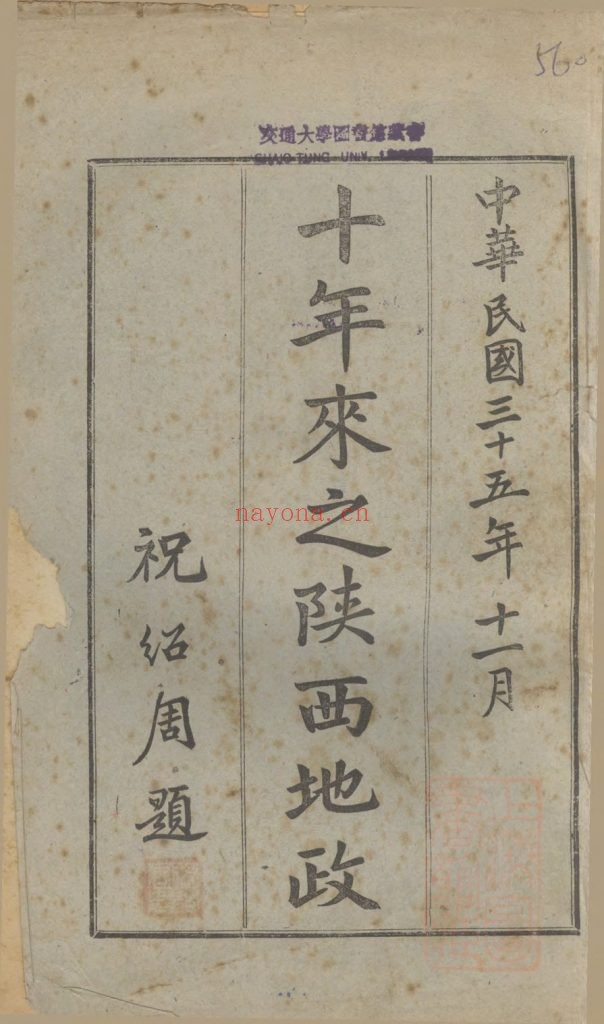 560
交通大學圖書館藏書
CHIAO TUNG UNIV.
中華民國三十五年十一月
十年來之陝西地政
祝紹周題
nayona.cn